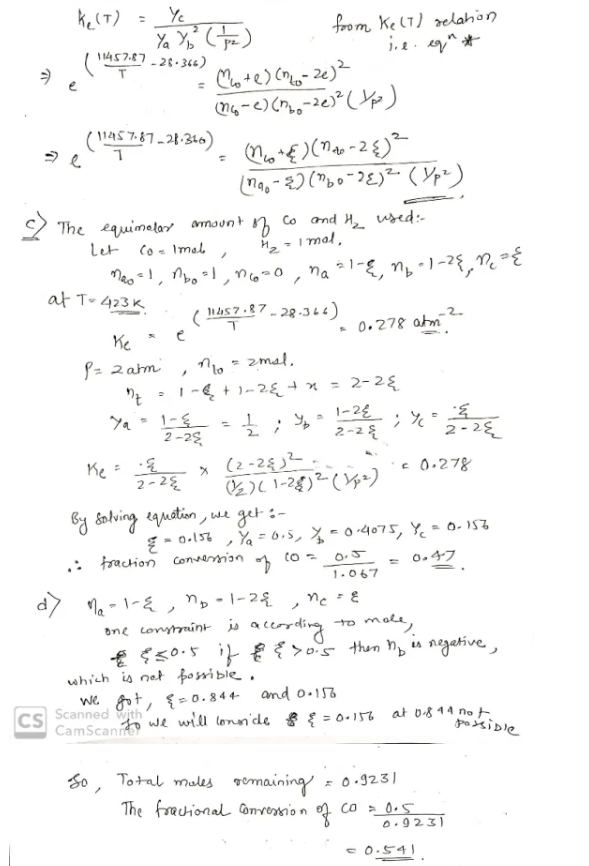 Ke(T) = Yc / Ya Yb² (1/p²) from Ke(T) relation
i.e. eqⁿ *
⇒ e^(11457.87/T - 28.366) = (nco+e)(nto-2e)² / (nao-e)(nbo-2e)² (1/p²)
⇒ e^(11457.87/T - 28.366) = (nco+ξ)(nto-2ξ)² / (nao-ξ)(nbo-2ξ)² (1/p²)
c) The equimolar amount of CO and H₂ used:-
Let CO = 1mol, H₂ = 1 mol,
nao=1, nbo=1, nco=0, na=1-ξ, nb=1-2ξ, nc=ξ
at T=423K
Ke = e^(11457.87/T - 28.366) = 0.278 atm⁻²
P= 2atm, nto = 2mol.
nt = 1-ξ+1-2ξ+x = 2-2ξ
Ya = 1-ξ / 2-2ξ = 1/2 ; Yb = 1-2ξ / 2-2ξ ; Yc = ξ / 2-2ξ
Ke = ξ / 2-2ξ × (2-2ξ)² / (1/2)(1-2ξ)² (1/p²) = 0.278
By solving equation, we get :-
ξ = 0.156, Ya = 0.5, Yb = 0.4075, Yc = 0.156
∴ fraction conversion of CO = 0.5 / 1.067 = 0.47
d) na = 1-ξ, nb = 1-2ξ, nc = ξ
one constraint is according to mole,
ξ≤0.5 if ξ>0.5 then nb is negative,
which is not possible.
we got, ξ=0.844 and 0.156
so we will conside ξ = 0.156 at 0.844 not possible
CS Scanned with
CamScanner
So, Total moles remaining = 0.9231
The fractional conversion of CO = 0.5 / 0.9231
= 0.541